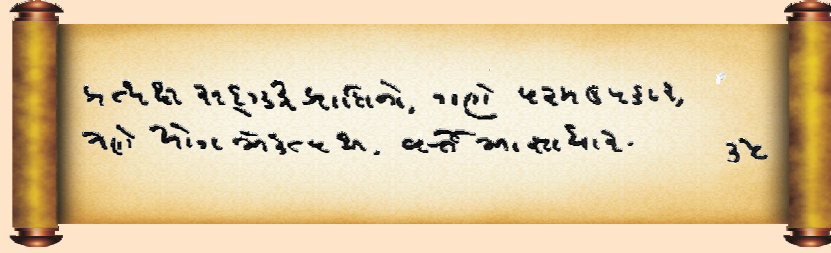 પ્રત્યક્ષ સદ્ગુરુ પ્રાપ્તિનો, ગણે પરમ ઉપકાર,
ત્રણે યોગ એકત્વથી, વર્તે આજ્ઞાધાર. ૩૫